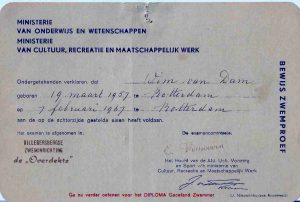 MINISTERIE
VAN ONDERWIJS EN WETENSCHAPPEN
MINISTERIE
VAN CULTUUR, RECREATIE EN MAATSCHAPPELIJK WERK
Ondergetekenden verklaren, dat Wim van Dam
geboren 19 maart 1957 te Rotterdam
op 7 februari 1967 te Rotterdam
aan de op de achterzijde gestelde eisen heeft voldaan.
Het examen is afgenomen in:
De examencommissie,
HILLEGERSBERGSE
ZWEMINRICHTING
de „Overdekte”
Het Hoofd van de Afd. Lich. Vorming
en Sport v/h ministerie van
Cultuur, Recreatie en Maatschappelijk
Werk,
Ga nu verder oefenen voor het DIPLOMA Geoefend Zwemmer
BEWIJS ZWEMPROEF